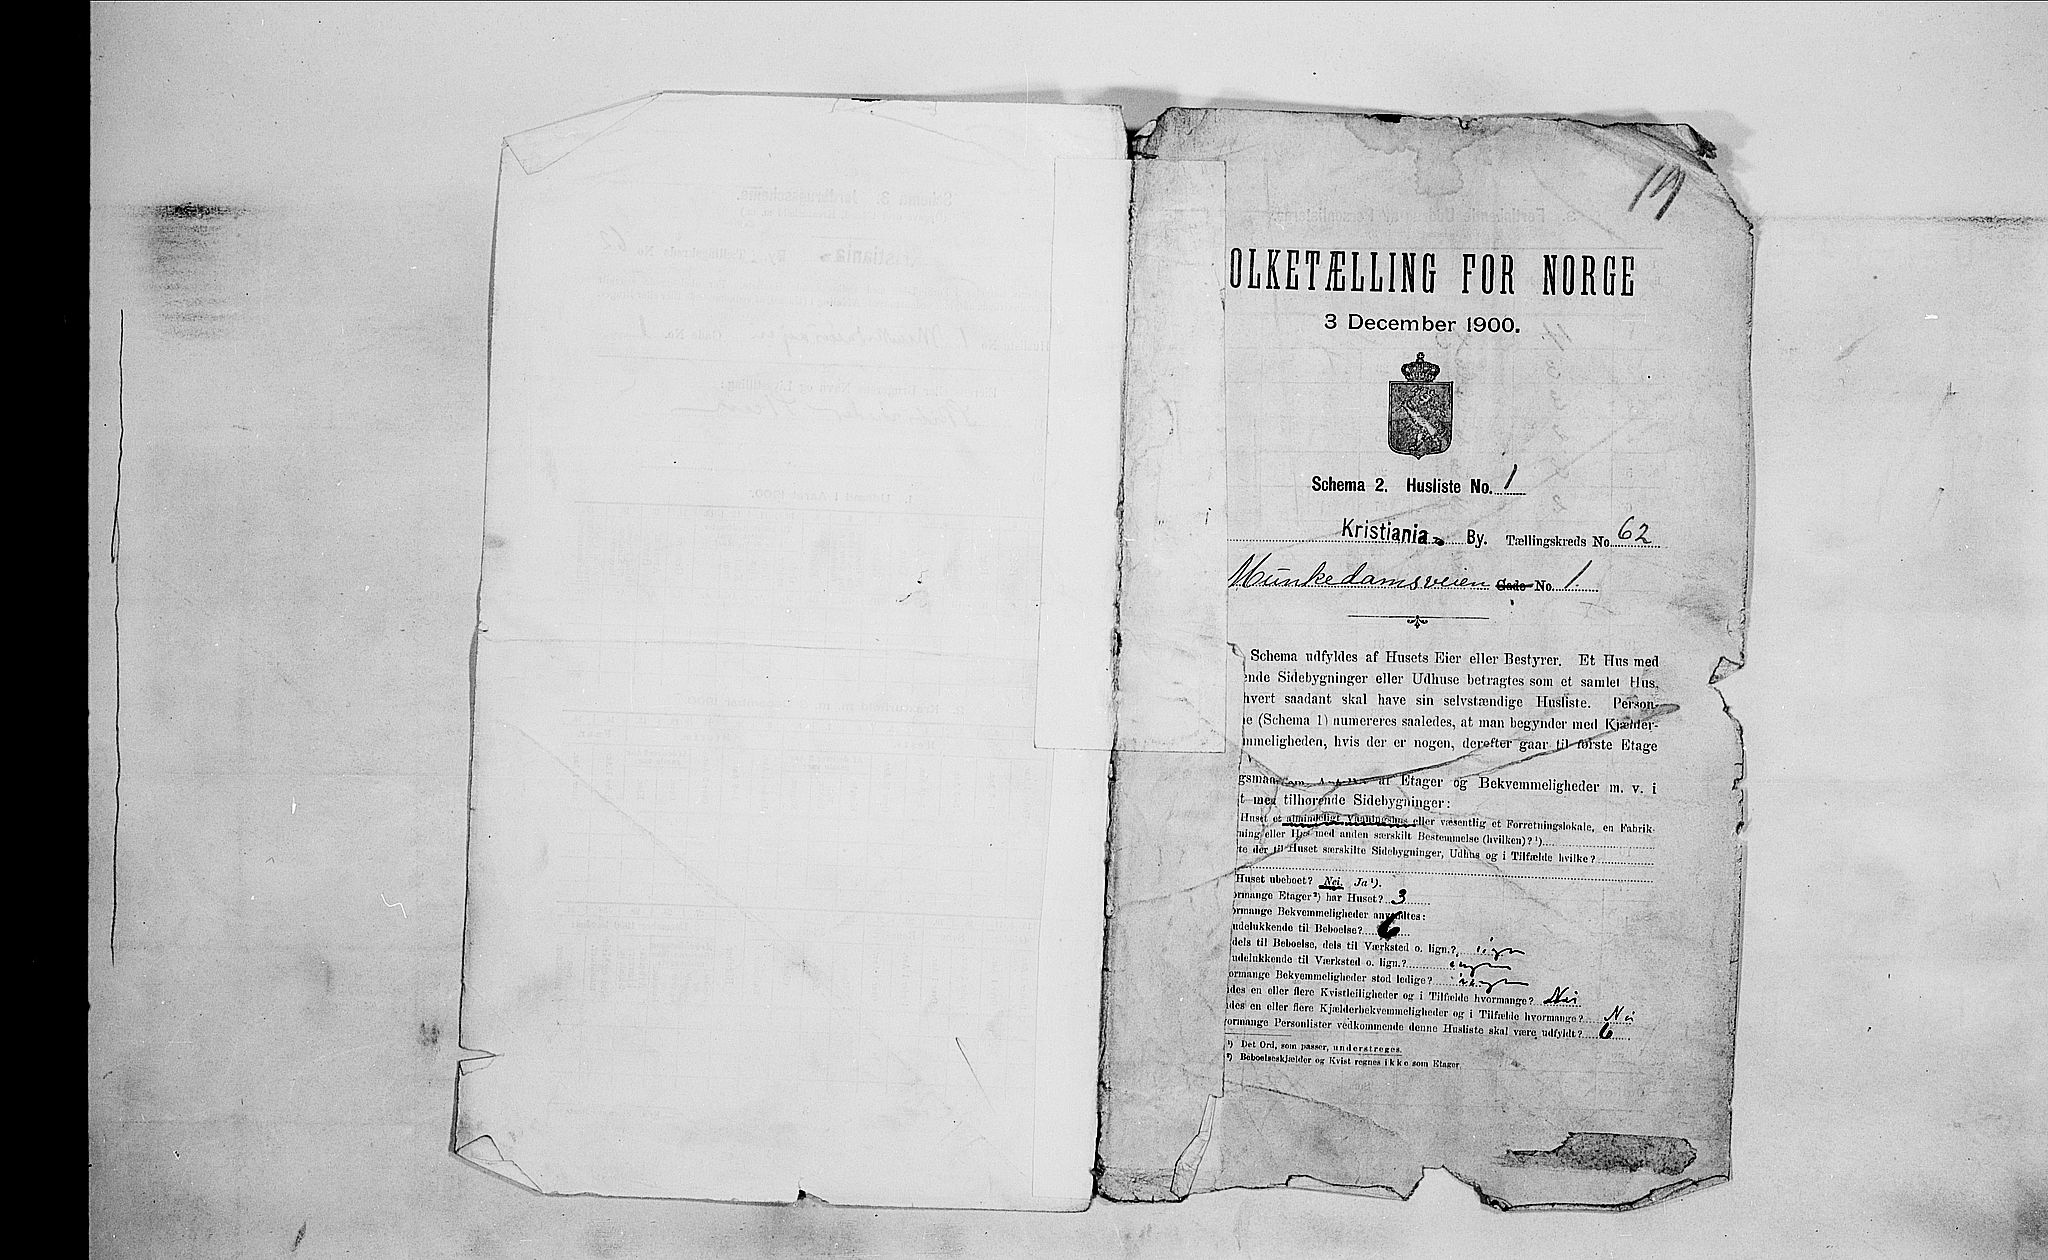 OLKETÆLLING FOR NORGE
3 December 1900.
Schema 2. Husliste No. 1
Kristiania By. Tællingskreds No. 62
Munkedamsveien Gade No. 1.
Schema udfyldes af Husets Eier eller Bestyrer. Et Hus med
ende Sidebygninger eller Udhuse betragtes som et samlet Hus,
hvert saadant skal have sin selvstændige Husliste. Person-
e (Schema 1) numereres saaledes, at man begynder med Kjælder-
mmeligheden, hvis der er nogen, derefter gaar til første Etage
af Etager og Bekvemmeligheder m. v. i
t med tilhørende Sidebygninger:
Huset et almindeligt Vaaningshus eller væsentlig et Forretningslokale, en Fabrik-
ning eller Hus med anden særskilt Bestemmelse (hvilken)? ¹)
te der til Huset særskilte Sidebygninger, Udhus og i Tilfælde hvilke?
Huset ubeboet? Nei. Ja ¹).
ormange Etager ²) har Huset? 3
ormange Bekvemmeligheder anvendtes:
udelukkende til Beboelse? 6
dels til Beboelse, dels til Værksted o. lign.? ingen
udelukkende til Værksted o. lign.? ingen
ormange Bekvemmeligheder stod ledige? ingen
des en eller flere Kvistleiligheder og i Tilfælde hvormange? Nei
des en eller flere Kjælderbekvemmeligheder og i Tilfælde hvormange? Nei
ormange Personlister vedkommende denne Husliste skal være udfyldt? 6
¹) Det Ord, som passer, understreges.
²) Beboelseskjælder og Kvist regnes ikke som Etager